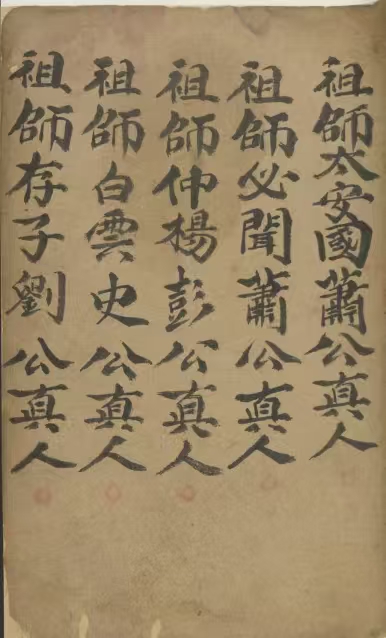 祖師太安國蕭公真人
祖師必聞蕭公真人
祖師仲楊彭公真人
祖師白雲史公真人
祖師存子劉公真人